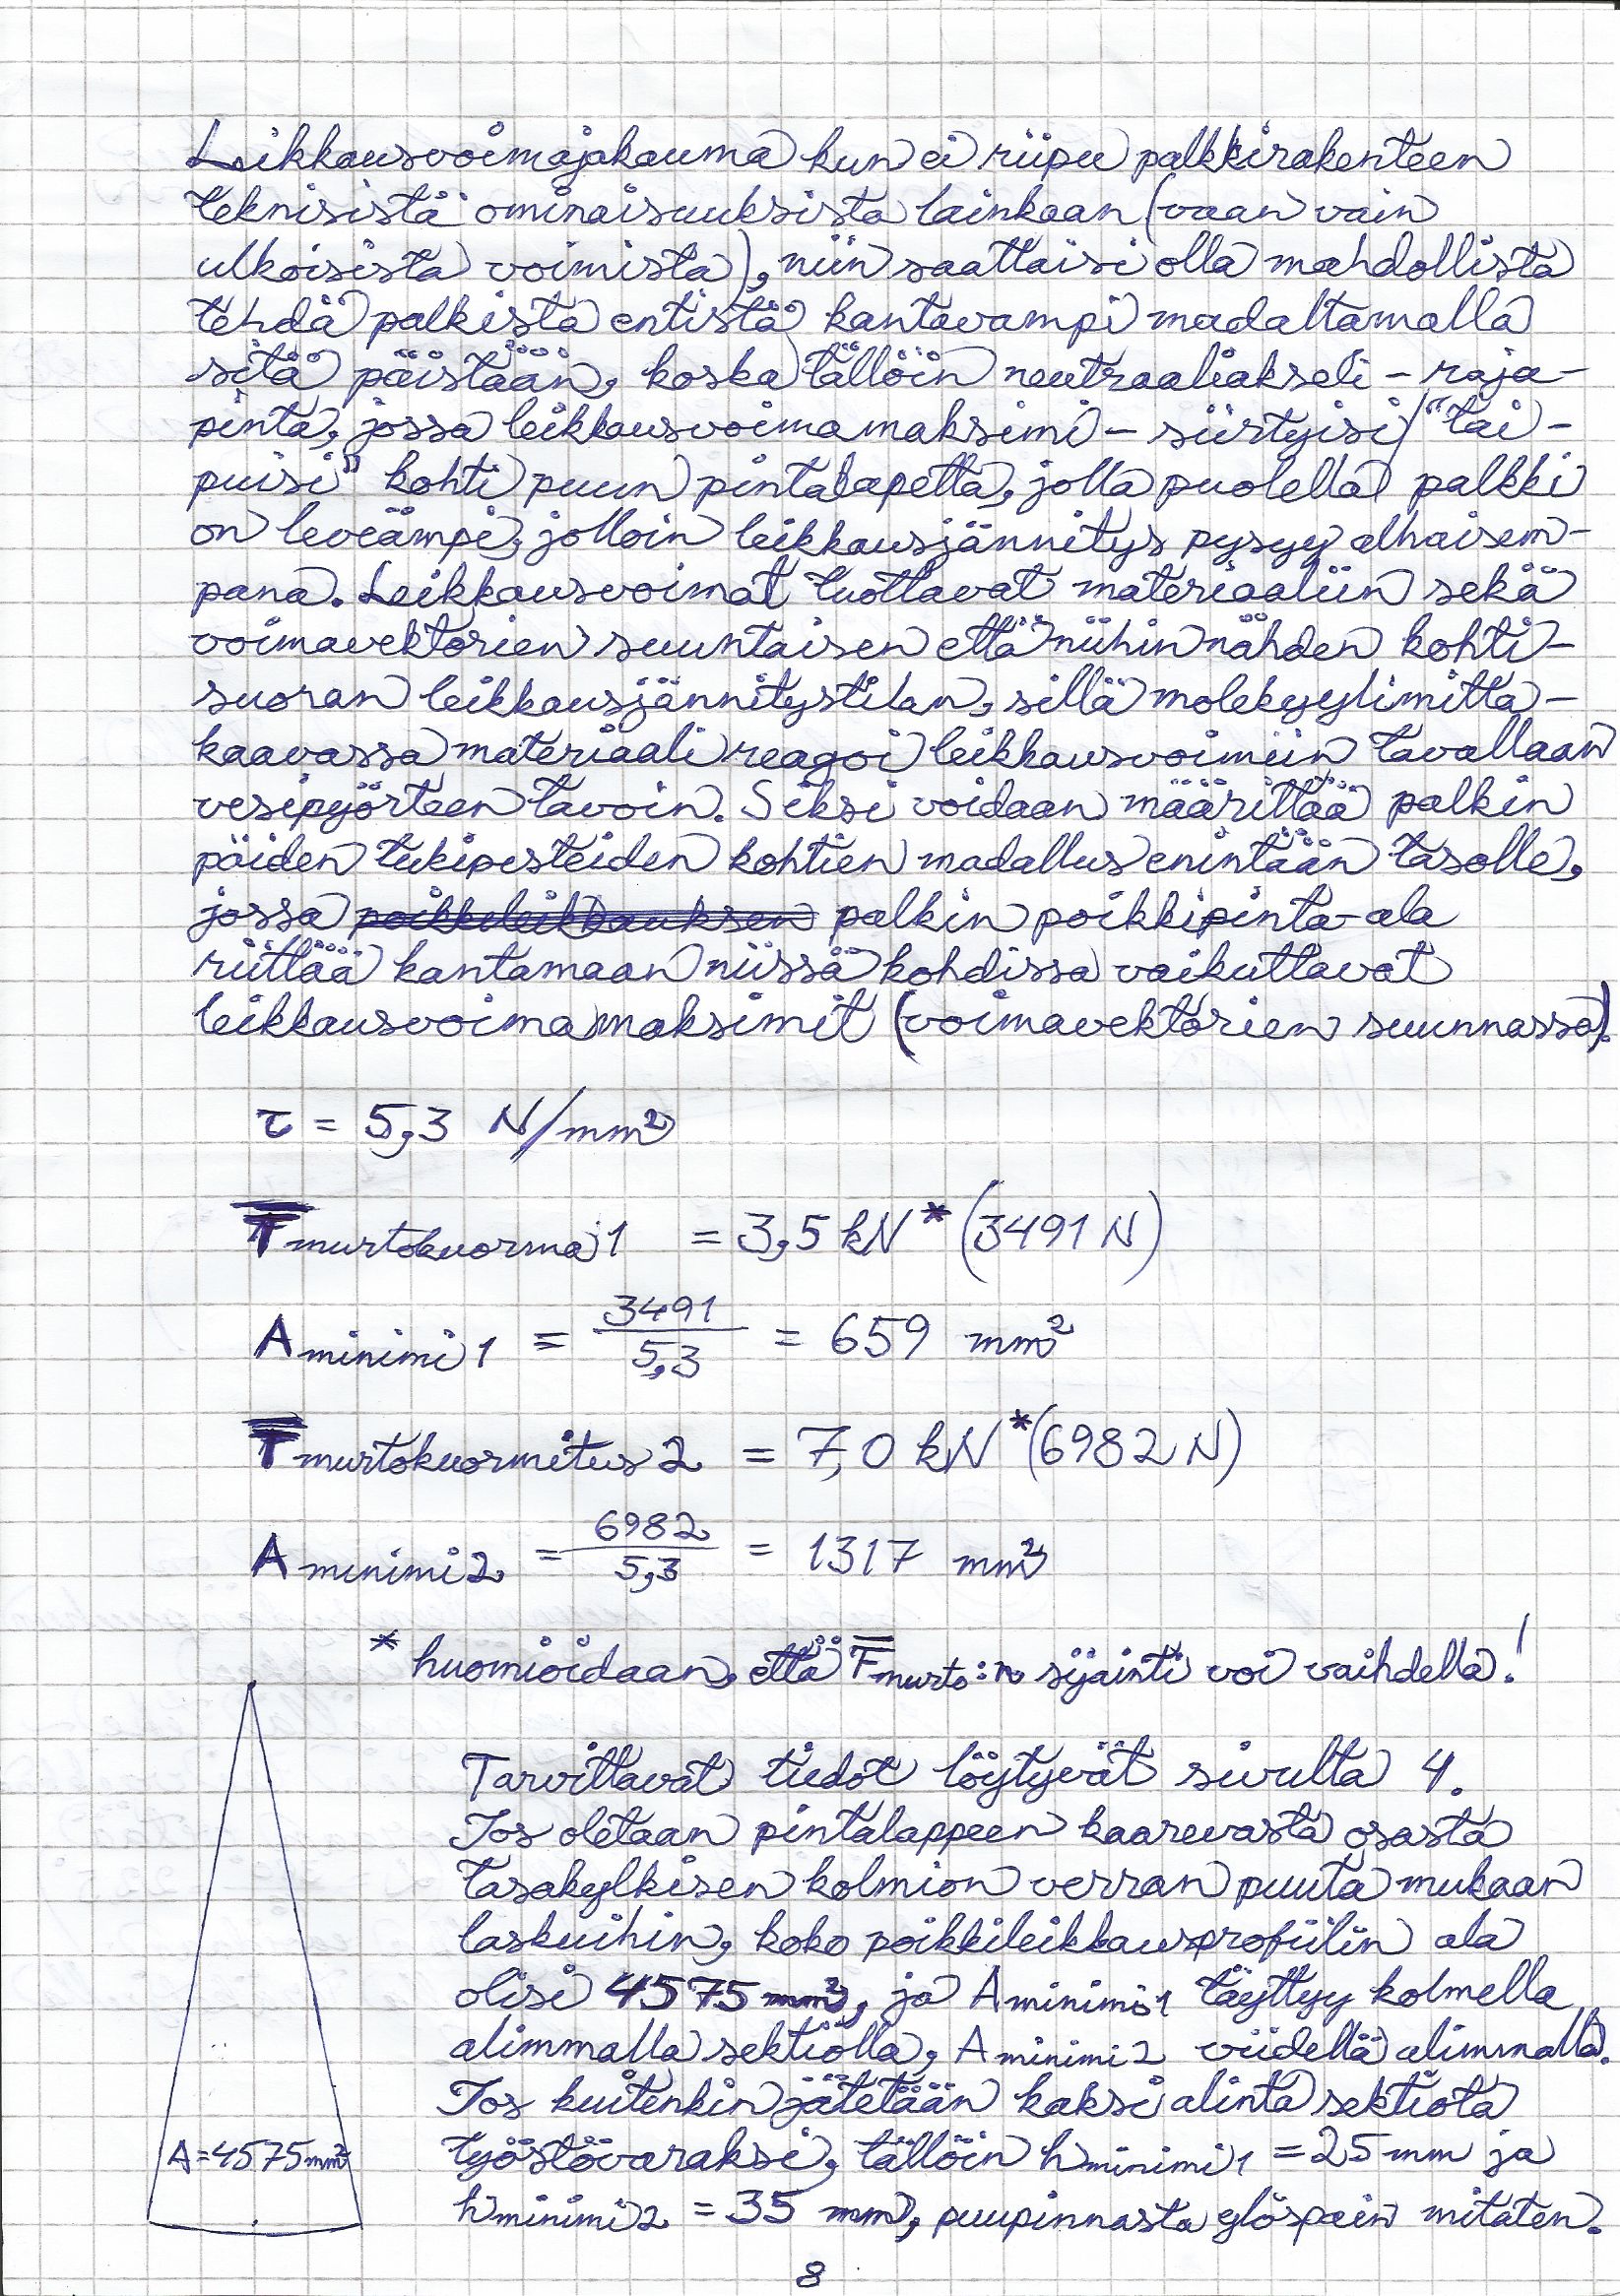 Leikkausvoimajakauma kun ei riipu palkkirakenteen
teknisistä ominaisuuksista lainkaan (vaan vain
ulkoisista voimista), niin saattaisi olla mahdollista
tehdä palkista entistä kantavampi madaltamalla
sitä päistään, koska tällöin neutraaliakseli - raja-
pinta, jossa leikkausvoimamaksimi - siirtyisi / "tai-
puisi" kohti puun pintalapetta, jolla puolella palkki
on leveämpi, jolloin leikkausjännitys pysyy alhaisem-
pana. Leikkausvoimat tuottavat materiaaliin sekä
voimavektorien suuntaisen että niihin nähden kohti-
suoran leikkausjännitystilan, sillä molekyylimitta-
kaavassa materiaali reagoi leikkausvoimiin tavallaan
vesipyörteen tavoin. Siksi voidaan määrittää palkin
päiden tukipisteiden kohtien madallus enintään tasolle,
jossa poikkileikkauksen palkin poikkipinta-ala
riittää kantamaan niissä kohdissa vaikuttavat
leikkausvoimamaksimit (voimavektorien suunnassa).
τ = 5,3 N/mm²
F̅murtokuorma1 = 3,5 kN* (3491 N)
Aminimi1 = 3491/5,3 = 659 mm²
F̅murtokuormitus2 = 7,0 kN* (6982 N)
Aminimi2 = 6982/5,3 = 1317 mm²
* huomioidaan, että F̅murto:n sijainti voi vaihdella!
Tarvittavat tiedot löytyvät sivulta 4.
Jos oletaan pintalappeen kaarevasta osasta
tasakylkisen kolmion verran puuta mukaan
laskuihin, koko poikkileikkausprofiilin ala
olisi 4575 mm², ja Aminimi1 täyttyy kolmella
alimmalla sektiolla, Aminimi2 viidellä alimmalla.
Jos kuitenkin jätetään kaksi alinta sektiota
työstövaraksi, tällöin hminimi1 = 25 mm ja
hminimi2 = 35 mm, puupinnasta ylöspäin mitaten.
A=4575mm²
8